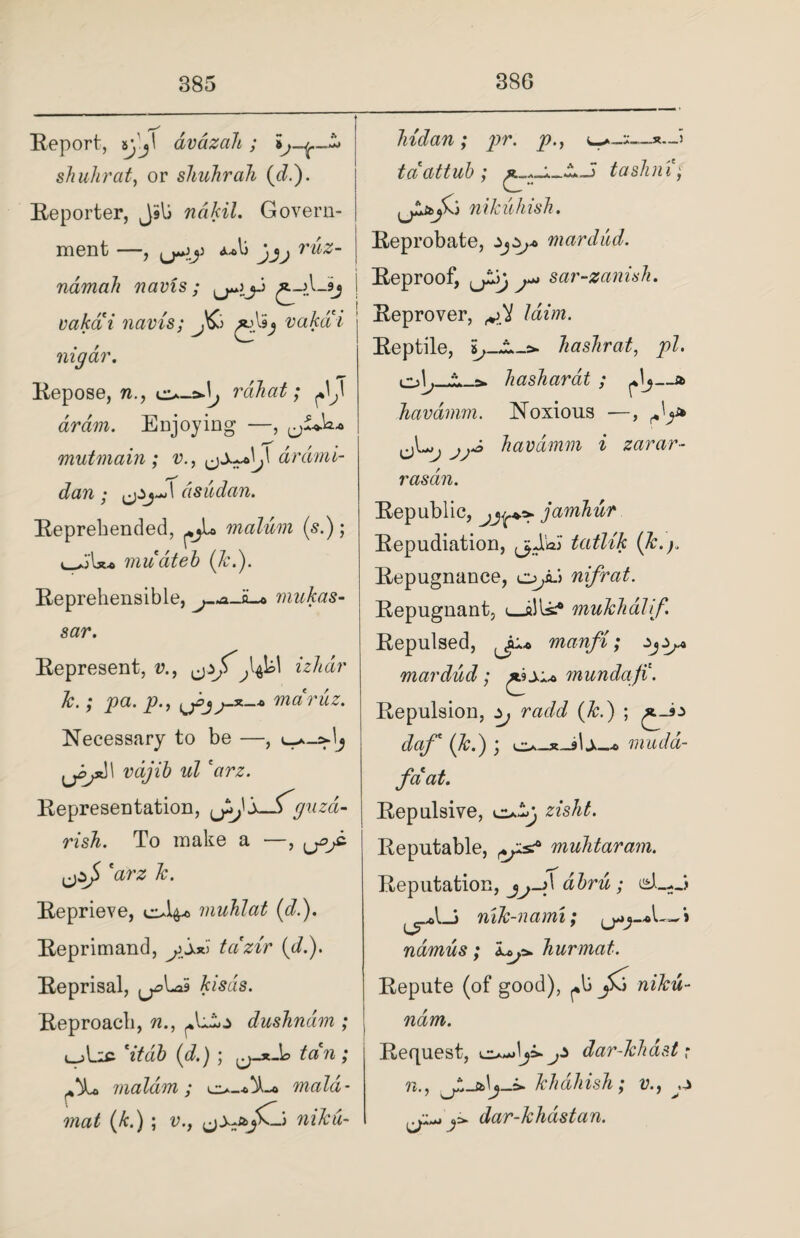 385
386
Report, آوازه ávázah ; شهرة
shuhrat, or shuhrah (d.).
Reporter, ناقل nákil. Govern-
ment —, روز نامه نویس rúz-
námah navís ; وقايع نویس
vaká'i navís; وقايع نگر vaká'i
nigár.
Repose, n., راحت ráhat ; آرام
árám. Enjoying —, مطمئن
mutmain ; v., آرامیدن árámi-
dan ; آسودن ásúdan.
Reprehended, ملوم malúm (s.) ;
معاتب mu'áteb (k.).
Reprehensible, مقصر mukas-
sar.
Represent, v., اظهار کردن izhár
k. ; pa. p., معروض ma'rúz.
Necessary to be —, واجب
العرض vájib ul 'arz.
Representation, گذارش guzá-
rish. To make a —, عرض
کردن 'arz k.
Reprieve, مهلت muhlat (d.).
Reprimand, تعذير ta'zír (d.).
Reprisal, قصاص kisás.
Reproach, n., دشنام dushnám ;
عتاب 'itáb (d.) ; طعن ta'n ;
ملام malám ; ملامت malá-
mat (k.) ; v., نکوهیدن nikú-
hídan ; pr. p., تعتب
ta'attub ; تشنيع tashní',
نکوهش nikúhish.
Reprobate, مردود mardúd.
Reproof, سر زنش sar-zanish.
Reprover, لايم láim.
Reptile, حشرة hashrat, pl.
حشرات hasharát ; هوام
havámm. Noxious —, هوام
ضرر رسان havámm i zarar-
rasán.
Republic, جمهور jamhúr
Repudiation, تطليق tatlík (k.).
Repugnance, نفرت nifrat.
Repugnant, مخالف mukhálif.
Repulsed, منفى manfí ; مردود
mardúd ; مندفع mundafi'.
Repulsion, رد radd (k.) ; دفع
daf' (k.) ; مدافعت mudá-
fa'at.
Repulsive, زشت zisht.
Reputable, محترم muhtaram.
Reputation, آبرو ábrú ; نيک
نامی ník-namí ; ناموس
námús ; حرمة hurmat.
Repute (of good), نکو نام nikú-
nám.
Request, در خواست dar-khást ;
n., خواهش kháhish ; v., در
خواستن dar-khástan.